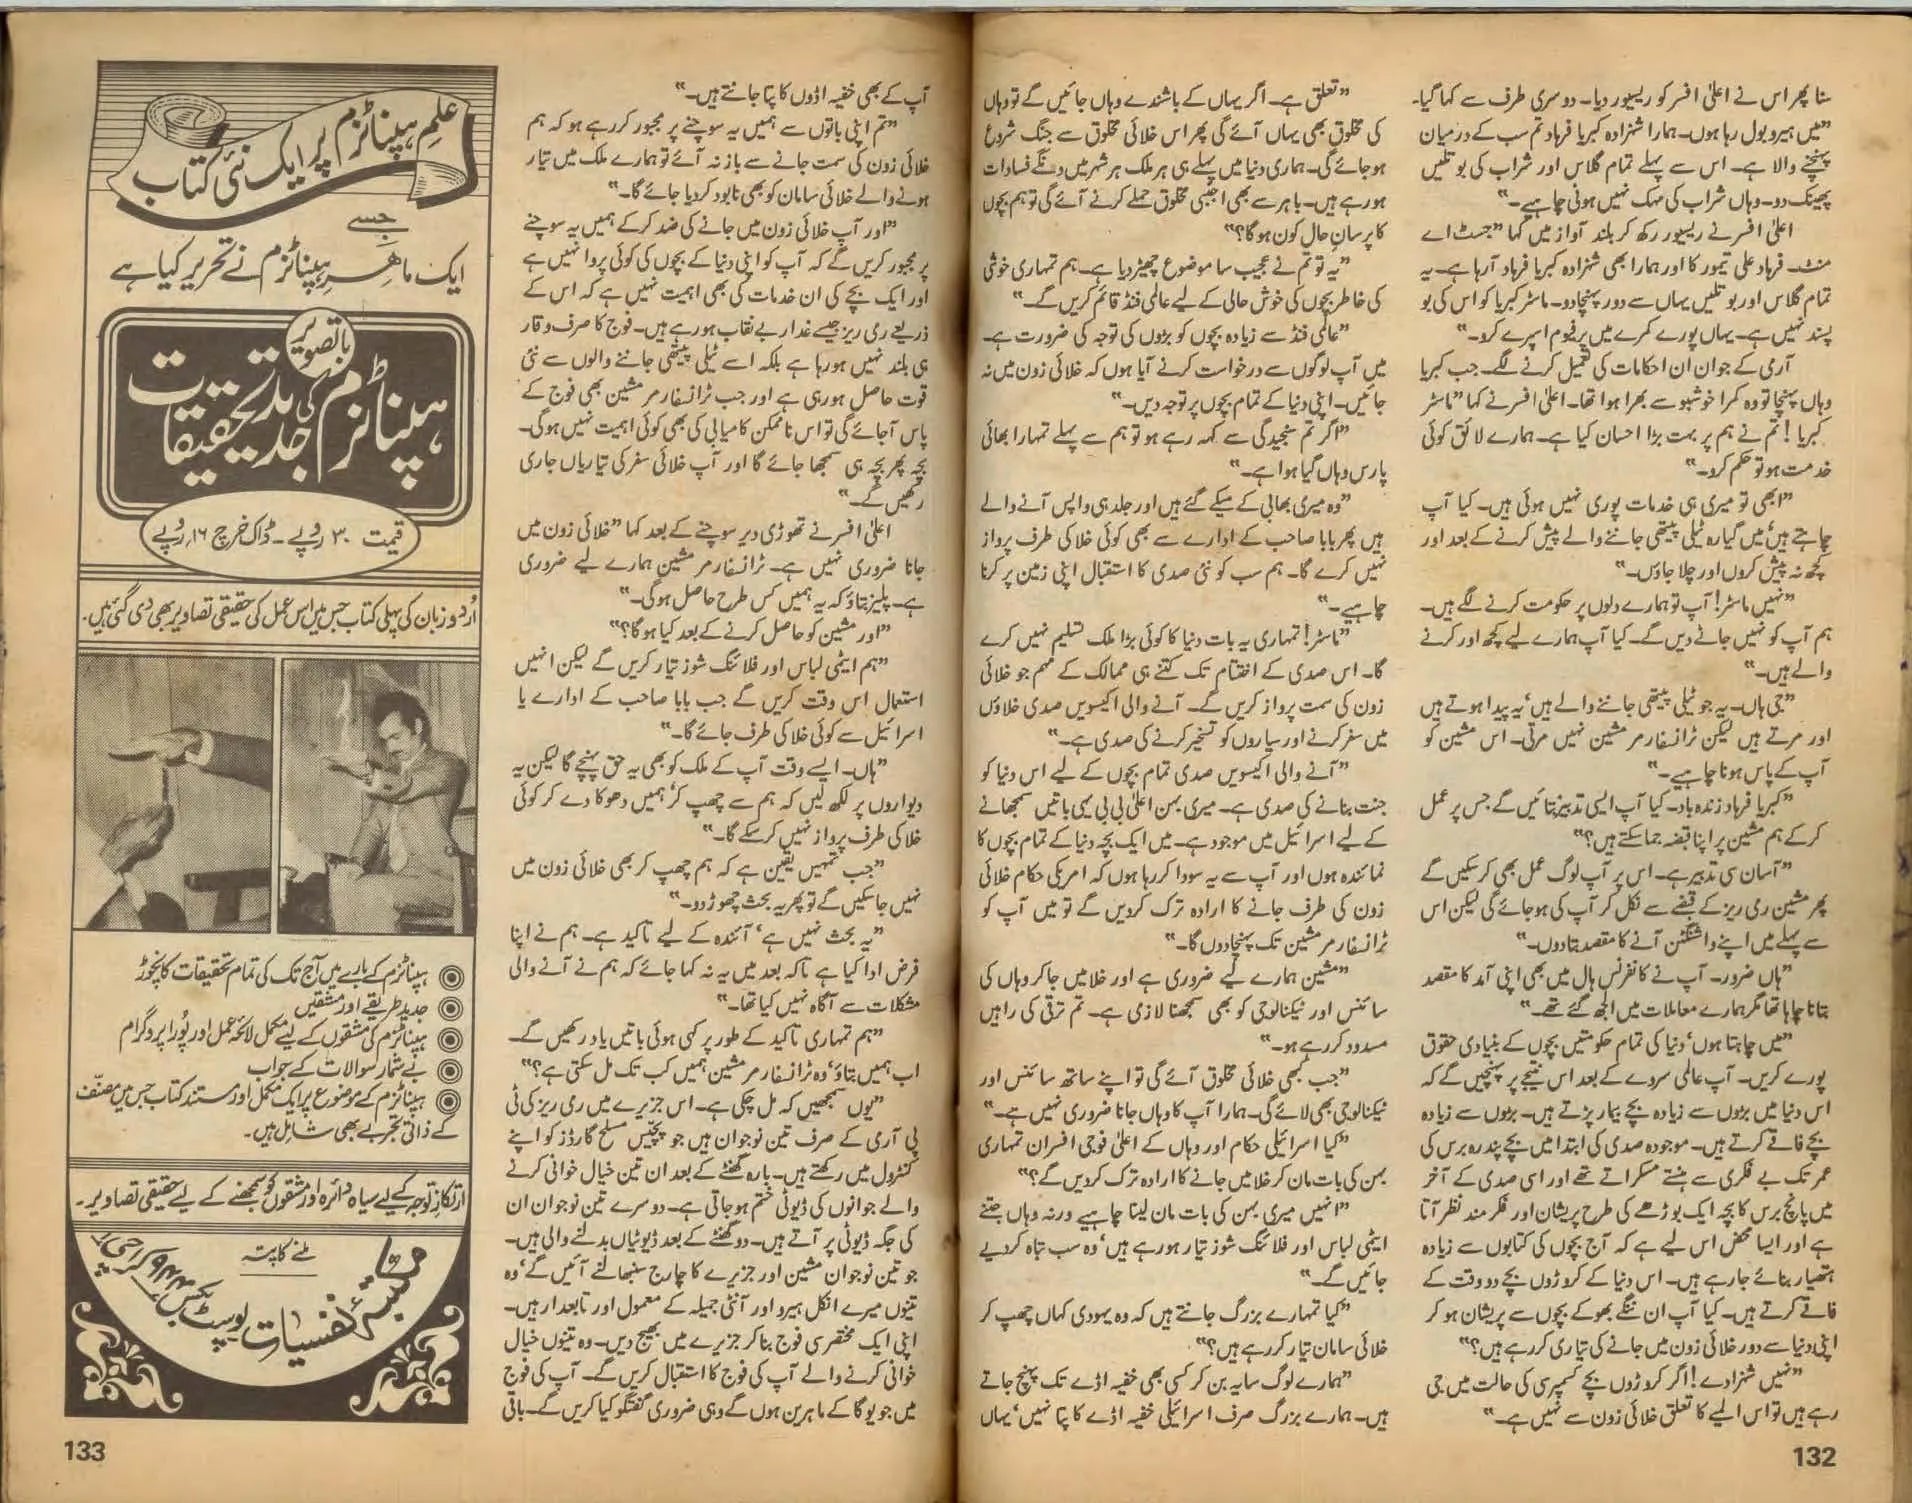 سنا پھر اس نے اعلیٰ افسر کو ریسیور دیا۔ دوسری طرف سے کہا گیا۔
"میں ہیرو بول رہا ہوں۔ ہمارا شہزادہ کبریا فرہاد تم سب کے درمیان
پہنچنے والا ہے۔ اس سے پہلے تمام گلاس اور شراب کی بوتلیں
پھینک دو۔ وہاں شراب کی مہک نہیں ہونی چاہیے۔"
اعلیٰ افسر نے ریسیور رکھ کر بلند آواز میں کہا "جسٹ اے
منٹ۔ فرہاد علی تیمور کا اور ہمارا بھی شہزادہ کبریا فرہاد آرہا ہے۔ یہ
تمام گلاس اور بوتلیں یہاں سے دور پہنچادو۔ ماسٹر کبریا کو اس کی بو
پسند نہیں ہے۔ یہاں پورے کمرے میں پرفیوم اسپرے کرو۔"
آرمی کے جوان ان احکامات کی تعمیل کرنے لگے۔ جب کبریا
وہاں پہنچا تو وہ کمرا خوشبو سے بھرا ہوا تھا۔ اعلیٰ افسر نے کہا "ماسٹر
کبریا! تم نے ہم پر بہت بڑا احسان کیا ہے۔ ہمارے لائق کوئی
خدمت ہو تو حکم کرو۔"
"ابھی تو میری ہی خدمات پوری نہیں ہوئی ہیں۔ کیا آپ
چاہتے ہیں، میں گیارہ ٹیلی پیتھی جاننے والے پیش کرنے کے بعد اور
کچھ نہ پیش کروں اور چلا جاؤں۔"
"نہیں ماسٹر! آپ تو ہمارے دلوں پر حکومت کرنے لگے ہیں۔
ہم آپ کو نہیں جانے دیں گے۔ کیا آپ ہمارے لیے کچھ اور کرنے
والے ہیں۔"
"جی ہاں۔ یہ جو ٹیلی پیتھی جاننے والے ہیں، یہ پیدا ہوتے ہیں
اور مرتے ہیں لیکن ٹرانسفارمر مشین نہیں مرتی۔ اس مشین کو
آپ کے پاس ہونا چاہیے۔"
"کبریا فرہاد زندہ باد۔ کیا آپ ایسی تدبیر بتائیں گے جس پر عمل
کرکے ہم مشین پر اپنا قبضہ جما سکتے ہیں؟"
"آسان سی تدبیر ہے۔ اس پر آپ لوگ عمل بھی کرسکیں گے
پھر مشین ری ریز کے قبضے سے نکل کر آپ کی ہوجائے گی لیکن اس
سے پہلے میں اپنے واشنگٹن آنے کا مقصد بتادوں۔"
"ہاں ضرور۔ آپ نے کانفرنس ہال میں بھی اپنی آمد کا مقصد
بتانا چاہا تھا مگر ہمارے معاملات میں الجھ گئے تھے۔"
"میں چاہتا ہوں، دنیا کی تمام حکومتیں بچوں کے بنیادی حقوق
پورے کریں۔ آپ عالمی سروے کے بعد اس نتیجے پر پہنچیں گے کہ
اس دنیا میں بڑوں سے زیادہ بچے بیمار پڑتے ہیں۔ بڑوں سے زیادہ
بچے فاقے کرتے ہیں۔ موجودہ صدی کی ابتدا میں بچے پندرہ برس کی
عمر تک بے فکری سے ہنستے مسکراتے تھے اور اسی صدی کے آخر
میں پانچ برس کا بچہ ایک بوڑھے کی طرح پریشان اور فکرمند نظر آتا
ہے اور ایسا محض اس لیے ہے کہ آج بچوں کی کتابوں سے زیادہ
ہتھیار بنائے جارہے ہیں۔ اس دنیا کے کروڑوں بچے دو وقت کے
فاقے کرتے ہیں۔ کیا آپ ان ننگے بھوکے بچوں سے پریشان ہو کر
اپنی دنیا سے دور خلائی زون میں جانے کی تیاری کررہے ہیں؟"
"نہیں شہزادے! اگر کروڑوں بچے کسمپرسی کی حالت میں جی
رہے ہیں تو اس المیے کا تعلق خلائی زون سے نہیں ہے۔"
132
"تعلق ہے۔ اگر یہاں کے باشندے وہاں جائیں گے تو وہاں
کی مخلوق بھی یہاں آئے گی پھر اس خلائی مخلوق سے جنگ شروع
ہوجائے گی۔ ہماری دنیا میں پہلے ہی ہر ملک ہر شہر میں دنگے فسادات
ہورہے ہیں۔ باہر سے بھی اجنبی مخلوق حملے کرنے آئے گی تو ہم بچوں
کا پرسان حال کون ہوگا؟"
"یہ تو تم نے عجیب سا موضوع چھیڑ دیا ہے۔ ہم تمہاری خوشی
کی خاطر بچوں کی خوش حالی کے لیے عالمی فنڈ قائم کریں گے۔"
"عالمی فنڈ سے زیادہ بچوں کو بڑوں کی توجہ کی ضرورت ہے۔
میں آپ لوگوں سے درخواست کرنے آیا ہوں کہ خلائی زون میں نہ
جائیں۔ اپنی دنیا کے تمام بچوں پر توجہ دیں۔"
"اگر تم سنجیدگی سے کہہ رہے ہو تو ہم سے پہلے تمہارا بھائی
پارس وہاں گیا ہوا ہے۔"
"وہ میری بھابی کے میکے گئے ہیں اور جلد ہی واپس آنے والے
ہیں پھر بابا صاحب کے ادارے سے بھی کوئی خلا کی طرف پرواز
نہیں کرے گا۔ ہم سب کو نئی صدی کا استقبال اپنی زمین پر کرنا
چاہیے۔"
"ماسٹر! تمہاری یہ بات دنیا کا کوئی بڑا ملک تسلیم نہیں کرے
گا۔ اس صدی کے اختتام تک کتنے ہی ممالک کے مہم جو خلائی
زون کی سمت پرواز کریں گے۔ آنے والی اکیسویں صدی خلاؤں
میں سفر کرنے اور سیاروں کو تسخیر کرنے کی صدی ہے۔"
"آنے والی اکیسویں صدی تمام بچوں کے لیے اس دنیا کو
جنت بنانے کی صدی ہے۔ میری بہن اعلیٰ بی بی یہی باتیں سمجھانے
کے لیے اسرائیل میں موجود ہے۔ میں ایک بچہ دنیا کے تمام بچوں کا
نمائندہ ہوں اور آپ سے یہ سودا کررہا ہوں کہ امریکی حکام خلائی
زون کی طرف جانے کا ارادہ ترک کردیں گے تو میں آپ کو
ٹرانسفارمر مشین تک پہنچادوں گا۔"
"مشین ہمارے لیے ضروری ہے اور خلا میں جاکر وہاں کی
سائنس اور ٹیکنالوجی کو بھی سمجھنا لازمی ہے۔ تم ترقی کی راہیں
مسدود کررہے ہو۔"
"جب کبھی خلائی مخلوق آئے گی تو اپنے ساتھ سائنس اور
ٹیکنالوجی بھی لائے گی۔ ہمارا آپ کا وہاں جانا ضروری نہیں ہے۔"
"کیا اسرائیلی حکام اور وہاں کے اعلیٰ فوجی افسران تمہاری
بہن کی بات مان کر خلا میں جانے کا ارادہ ترک کردیں گے؟"
"انہیں میری بہن کی بات مان لینا چاہیے ورنہ وہاں جتنے
ایٹمی لباس اور فلائنگ شوز تیار ہورہے ہیں، وہ سب تباہ کردیے
جائیں گے۔"
"کیا تمہارے بزرگ جانتے ہیں کہ وہ یہودی کہاں چھپ کر
خلائی سامان تیار کررہے ہیں؟"
"ہمارے لوگ سایہ بن کر کسی بھی خفیہ اڈے تک پہنچ جاتے
ہیں۔ ہمارے بزرگ صرف اسرائیلی خفیہ اڈے کا پتا نہیں، یہاں
آپ کے بھی خفیہ اڈوں کا پتا جانتے ہیں۔"
"تم اپنی باتوں سے ہمیں یہ سوچنے پر مجبور کررہے ہو کہ ہم
خلائی زون کی سمت جانے سے باز نہ آئے تو ہمارے ملک میں تیار
ہونے والے خلائی سامان کو بھی نابود کردیا جائے گا۔"
"اور آپ خلائی زون میں جانے کی ضد کرکے ہمیں یہ سوچنے
پر مجبور کریں گے کہ آپ کو اپنی دنیا کے بچوں کی کوئی پروا نہیں ہے
اور ایک بچے کی ان خدمات کی بھی اہمیت نہیں ہے کہ اس کے
ذریعے ری ریز جیسے غدار بے نقاب ہورہے ہیں۔ فوج کا صرف وقار
ہی بلند نہیں ہورہا ہے بلکہ اسے ٹیلی پیتھی جاننے والوں سے نئی
قوت حاصل ہورہی ہے اور جب ٹرانسفارمر مشین بھی فوج کے
پاس آجائے گی تو اس ناممکن کامیابی کی بھی کوئی اہمیت نہیں ہوگی۔
بچہ پھر بچہ ہی سمجھا جائے گا اور آپ خلائی سفر کی تیاریاں جاری
رکھیں گے۔"
اعلیٰ افسر نے تھوڑی دیر سوچنے کے بعد کہا "خلائی زون میں
جانا ضروری نہیں ہے۔ ٹرانسفارمر مشین ہمارے لیے ضروری
ہے۔ پلیز بتاؤ کہ یہ ہمیں کس طرح حاصل ہوگی۔"
"اور مشین کو حاصل کرنے کے بعد کیا ہوگا؟"
"ہم ایٹمی لباس اور فلائنگ شوز تیار کریں گے لیکن انہیں
استعمال اس وقت کریں گے جب بابا صاحب کے ادارے یا
اسرائیل سے کوئی خلا کی طرف جائے گا۔"
"ہاں۔ ایسے وقت آپ کے ملک کو بھی یہ حق پہنچے گا لیکن یہ
دیواروں پر لکھ لیں کہ ہم سے چھپ کر، ہمیں دھوکا دے کر کوئی
خلا کی طرف پرواز نہیں کرسکے گا۔"
"جب تمہیں یقین ہے کہ ہم چھپ کر بھی خلائی زون میں
نہیں جاسکیں گے تو پھر یہ بحث چھوڑ دو۔"
"یہ بحث نہیں ہے، آئندہ کے لیے تاکید ہے۔ ہم نے اپنا
فرض ادا کیا ہے تاکہ بعد میں یہ نہ کہا جائے کہ ہم نے آنے والی
مشکلات سے آگاہ نہیں کیا تھا۔"
"ہم تمہاری تاکید کے طور پر کہی ہوئی باتیں یاد رکھیں گے۔
اب ہمیں بتاؤ، وہ ٹرانسفارمر مشین ہمیں کب تک مل سکتی ہے؟"
"یوں سمجھیں کہ مل چکی ہے۔ اس جزیرے میں ری ریز کی ٹی
پی آری کے صرف تین نوجوان ہیں جو پچیس مسلح گارڈز کو اپنے
کنٹرول میں رکھتے ہیں۔ بارہ گھنٹے کے بعد ان تین خیال خوانی کرنے
والے جوانوں کی ڈیوٹی ختم ہوجاتی ہے۔ دوسرے تین نوجوان ان
کی جگہ ڈیوٹی پر آتے ہیں۔ دو گھنٹے کے بعد ڈیوٹیاں بدلنے والی ہیں۔
جو تین نوجوان مشین اور جزیرے کا چارج سنبھالنے آئیں گے، وہ
تینوں میرے انکل ہیرو اور آنٹی جمیلہ کے معمول اور تابعدار ہیں۔
اپنی ایک مختصر سی فوج بناکر جزیرے میں بھیج دیں۔ وہ تینوں خیال
خوانی کرنے والے آپ کی فوج کا استقبال کریں گے۔ آپ کی فوج
میں جو یوگا کے ماہرین ہوں گے وہی ضروری گفتگو کیا کریں گے۔ باقی
علمِ ہپناٹزم پر ایک نئی کتاب
جسے
ایک ماہرِ ہپناٹزم نے تحریر کیا ہے
باتصویر
ہپناٹزم کی جدید تحقیقات
قیمت ۳۰ روپے۔ ڈاک خرچ ۱۶ روپے
اُردو زبان کی پہلی کتاب جس میں اس عمل کی حقیقی تصاویر بھی دی گئی ہیں۔
ہپناٹزم کے بارے میں آج تک کی تمام تحقیقات کا نچوڑ
جدید طریقے اور مشقیں
ہپناٹزم کی مشقوں کے لیے مکمل لائحہ عمل اور پُورا پروگرام
بے شمار سوالات کے جواب
ہپناٹزم کے موضوع پر ایک مکمل اور مستند کتاب جس میں مصنّف
کے ذاتی تجربے بھی شامل ہیں۔
ارتکازِ توجہ کے لیے سیاہ دائرہ اور مشقوں کو سمجھنے کے لیے حقیقی تصاویر۔
ملنے کا پتہ
مکتبۂ نفسیات پوسٹ بکس ۹۴۴ کراچی ۱
133